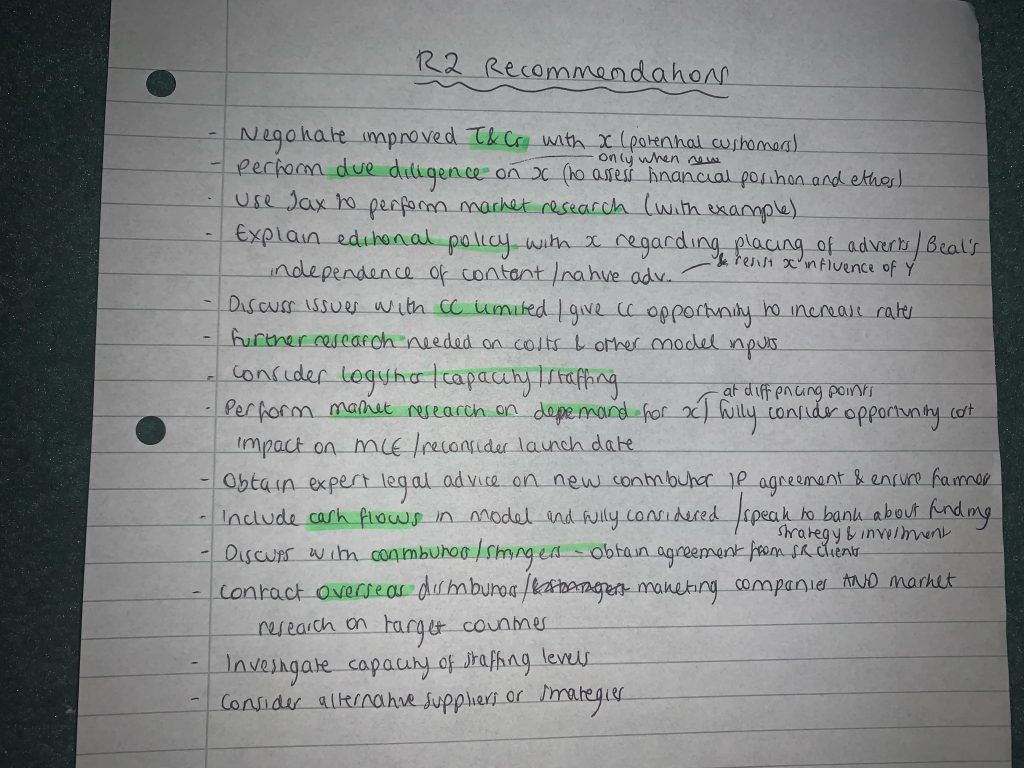 R2 Recommendations
- Negotiate improved T&Cs with x (potential customers)
only when new
- Perform due diligence on x (to assess financial position and ethos)
- Use Jax to perform market research (with example)
- Explain editorial policy with x regarding placing of adverts / Beal's
independence of content / native adv. & resist x influence of Y
- Discuss issues with CC Limited / give CC opportunity to increase rates
- Further research needed on costs & other model inputs
- Consider logistics / capacity / staffing
at diff pricing points
- Perform market research on demand for x / fully consider opportunity cost
impact on MCE / reconsider launch date
- Obtain expert legal advice on new contributor IP agreement & ensure fairness
- Include cash flows in model and fully considered / speak to bank about funding
strategy & investment
- Discuss with contributors / stringers - obtain agreement from SR clients
- Contact overseas distributors / marketing companies AND market
research on target countries
- Investigate capacity of staffing levels
- Consider alternative suppliers or strategies